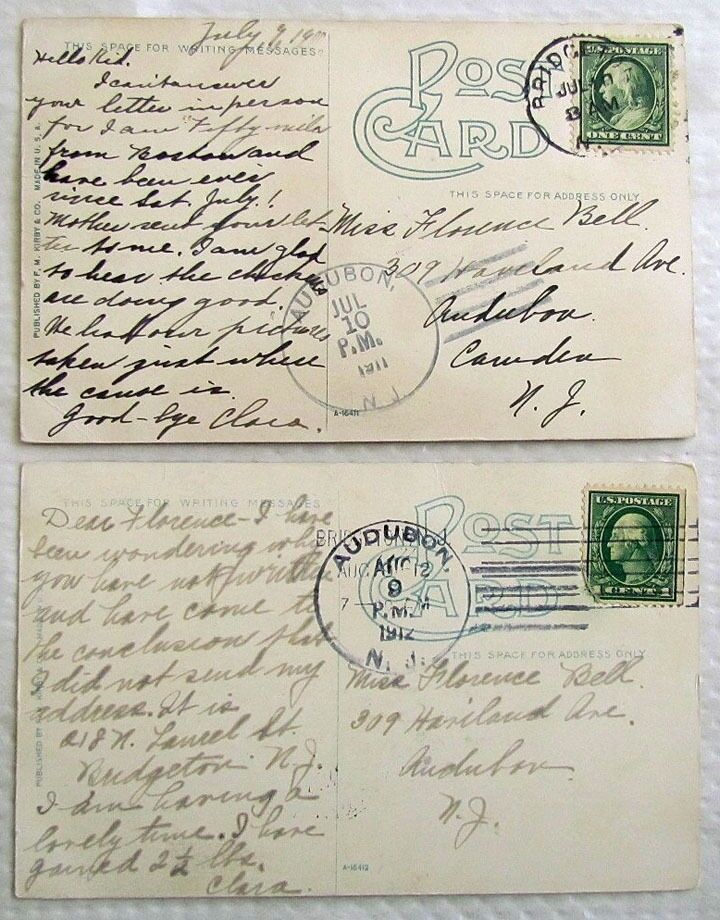 July 9, 19
THIS SPACE FOR WRITING MESSAGES
Hello Kid.
I can't answer
your letter in person
for I am Fifty miles
from Boston and
have been ever
since Sat. July 1
Mother sent your let-
ter to me. I am glad
to hear the chickens
are doing good.
We had our pictures
taken just where
the canoe is.
Good-bye Clara.
PUBLISHED BY F. M. KIRBY & CO. MADE IN U. S. A.
POST
CARD
BRIDG
JUL
AM
N
U.S. POSTAGE
ONE CENT
THIS SPACE FOR ADDRESS ONLY
Miss Florence Bell.
309 Ave.
Audubon.
Camden
N. J.
AUDUBON,
JUL
10
P.M.
1911
N. J.
A-16411
THIS SPACE FOR WRITING MESSAGES
Dear Florence - I have
been wondering why
you have not written
and have come to
the conclusion that
I did not send my
address. It is
218 N. Laurel St.
Bridgeton N. J.
I am having a
lovely time. I have
gained 2½ lbs.
Clara.
PUBLISHED BY
POST
CARD
AUDUBON,
AUG
9
P.M.
1912
N. J.
U.S. POSTAGE
1 CENT 1
THIS SPACE FOR ADDRESS ONLY
Miss Florence Bell.
309 Ave.
Audubon
N. J.
A-16412